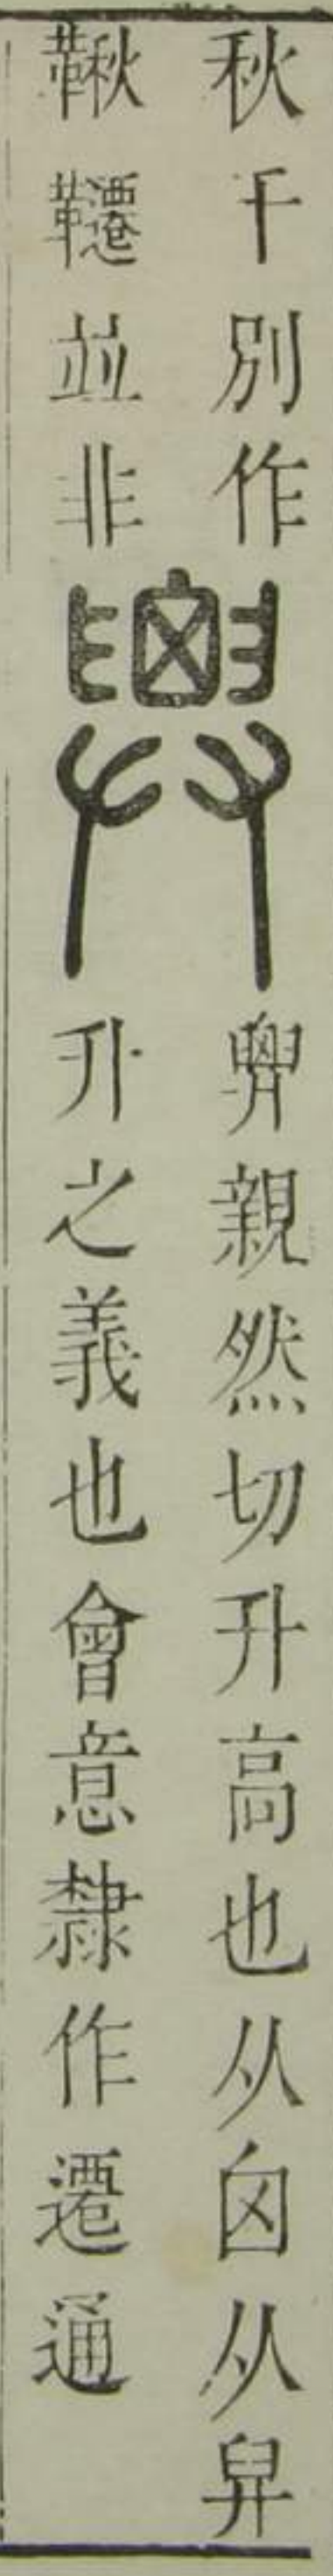 秋千別作
鞦韆並非
親然切升高也从囟从舁
升之義也會意隸作遷通